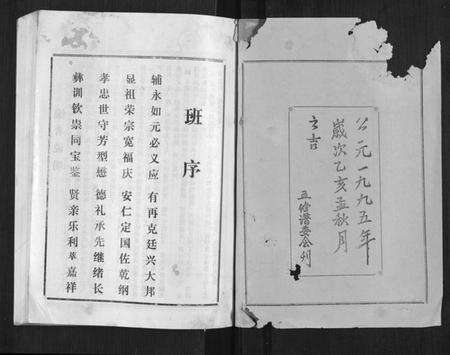 公元一九九五年
岁次乙亥孟秋月
立吉
五修谱委会刊
班序
辅永如元必义应 有再克廷兴大邦
显祖荣宗宽福庆 安仁定国佐乾纲
孝忠世守芳型懋 德礼承先继绪长
彝训钦崇同宝鉴 贤亲乐利萃嘉祥